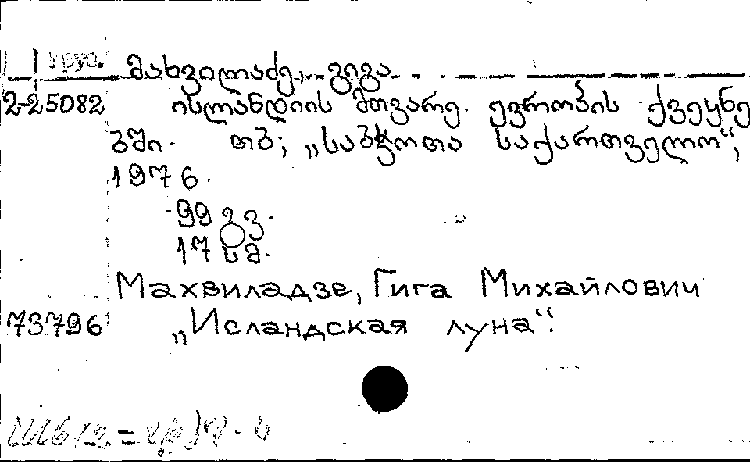 груз. მახვილაძე, გიგა
2-25082 ისლანდიის მთვარე. ევროპის ქვეყნე
ბში. თბ; „საბჭოთა საქართველო“,
1976.
99 გვ.
17 სმ.
Махвиладзе, Гига Михайлович
73796 „Исландская луна“.